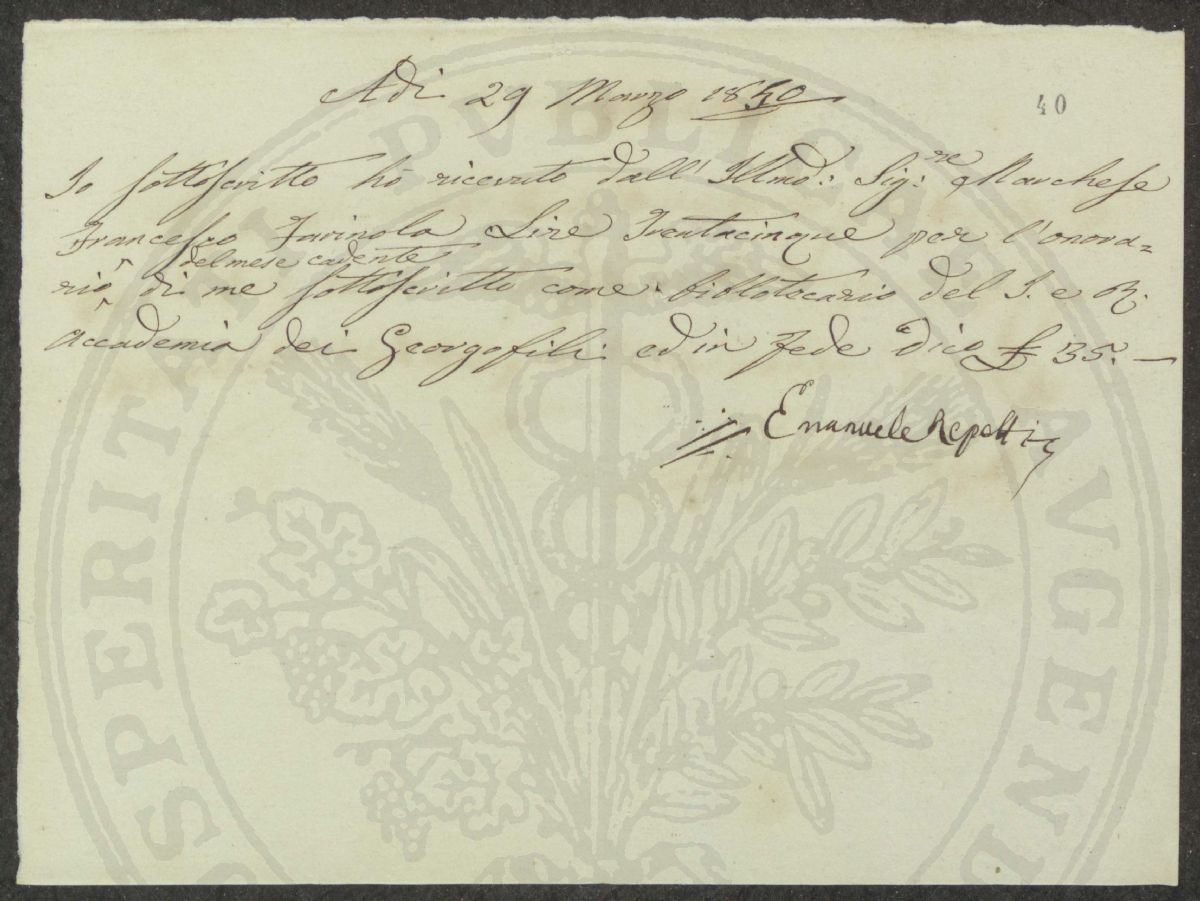 Adi 29 Marzo 1840
40
Io sottoscritto hò ricevuto dall' Illmo: Sig:re Marchese
Francesco Farinola Lire Trentacinque per l'onora=
del mese cadente
rio di me sottoscritto come bibliotecario del I. e R.
Accademia dei Georgofili ed in fede dico £ 35. —
Emanuele Repetti
PROSPERITATI PVBLICAE AVGENDAE